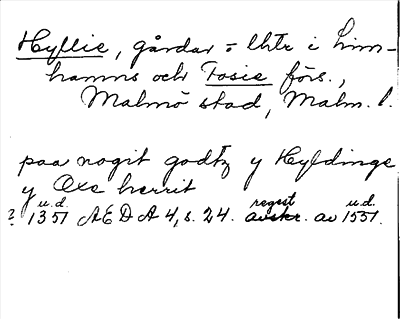 Hyllie, gårdar o lhtr i Lim-
hamns och Fosie förs.,
Malmö stad, Malm. l.
paa nogit godtz y Hyldinge
y Oxe herrit
u.d. regest u.d.
? 1351 AEDA 4, s. 24. avskr. av 1551.